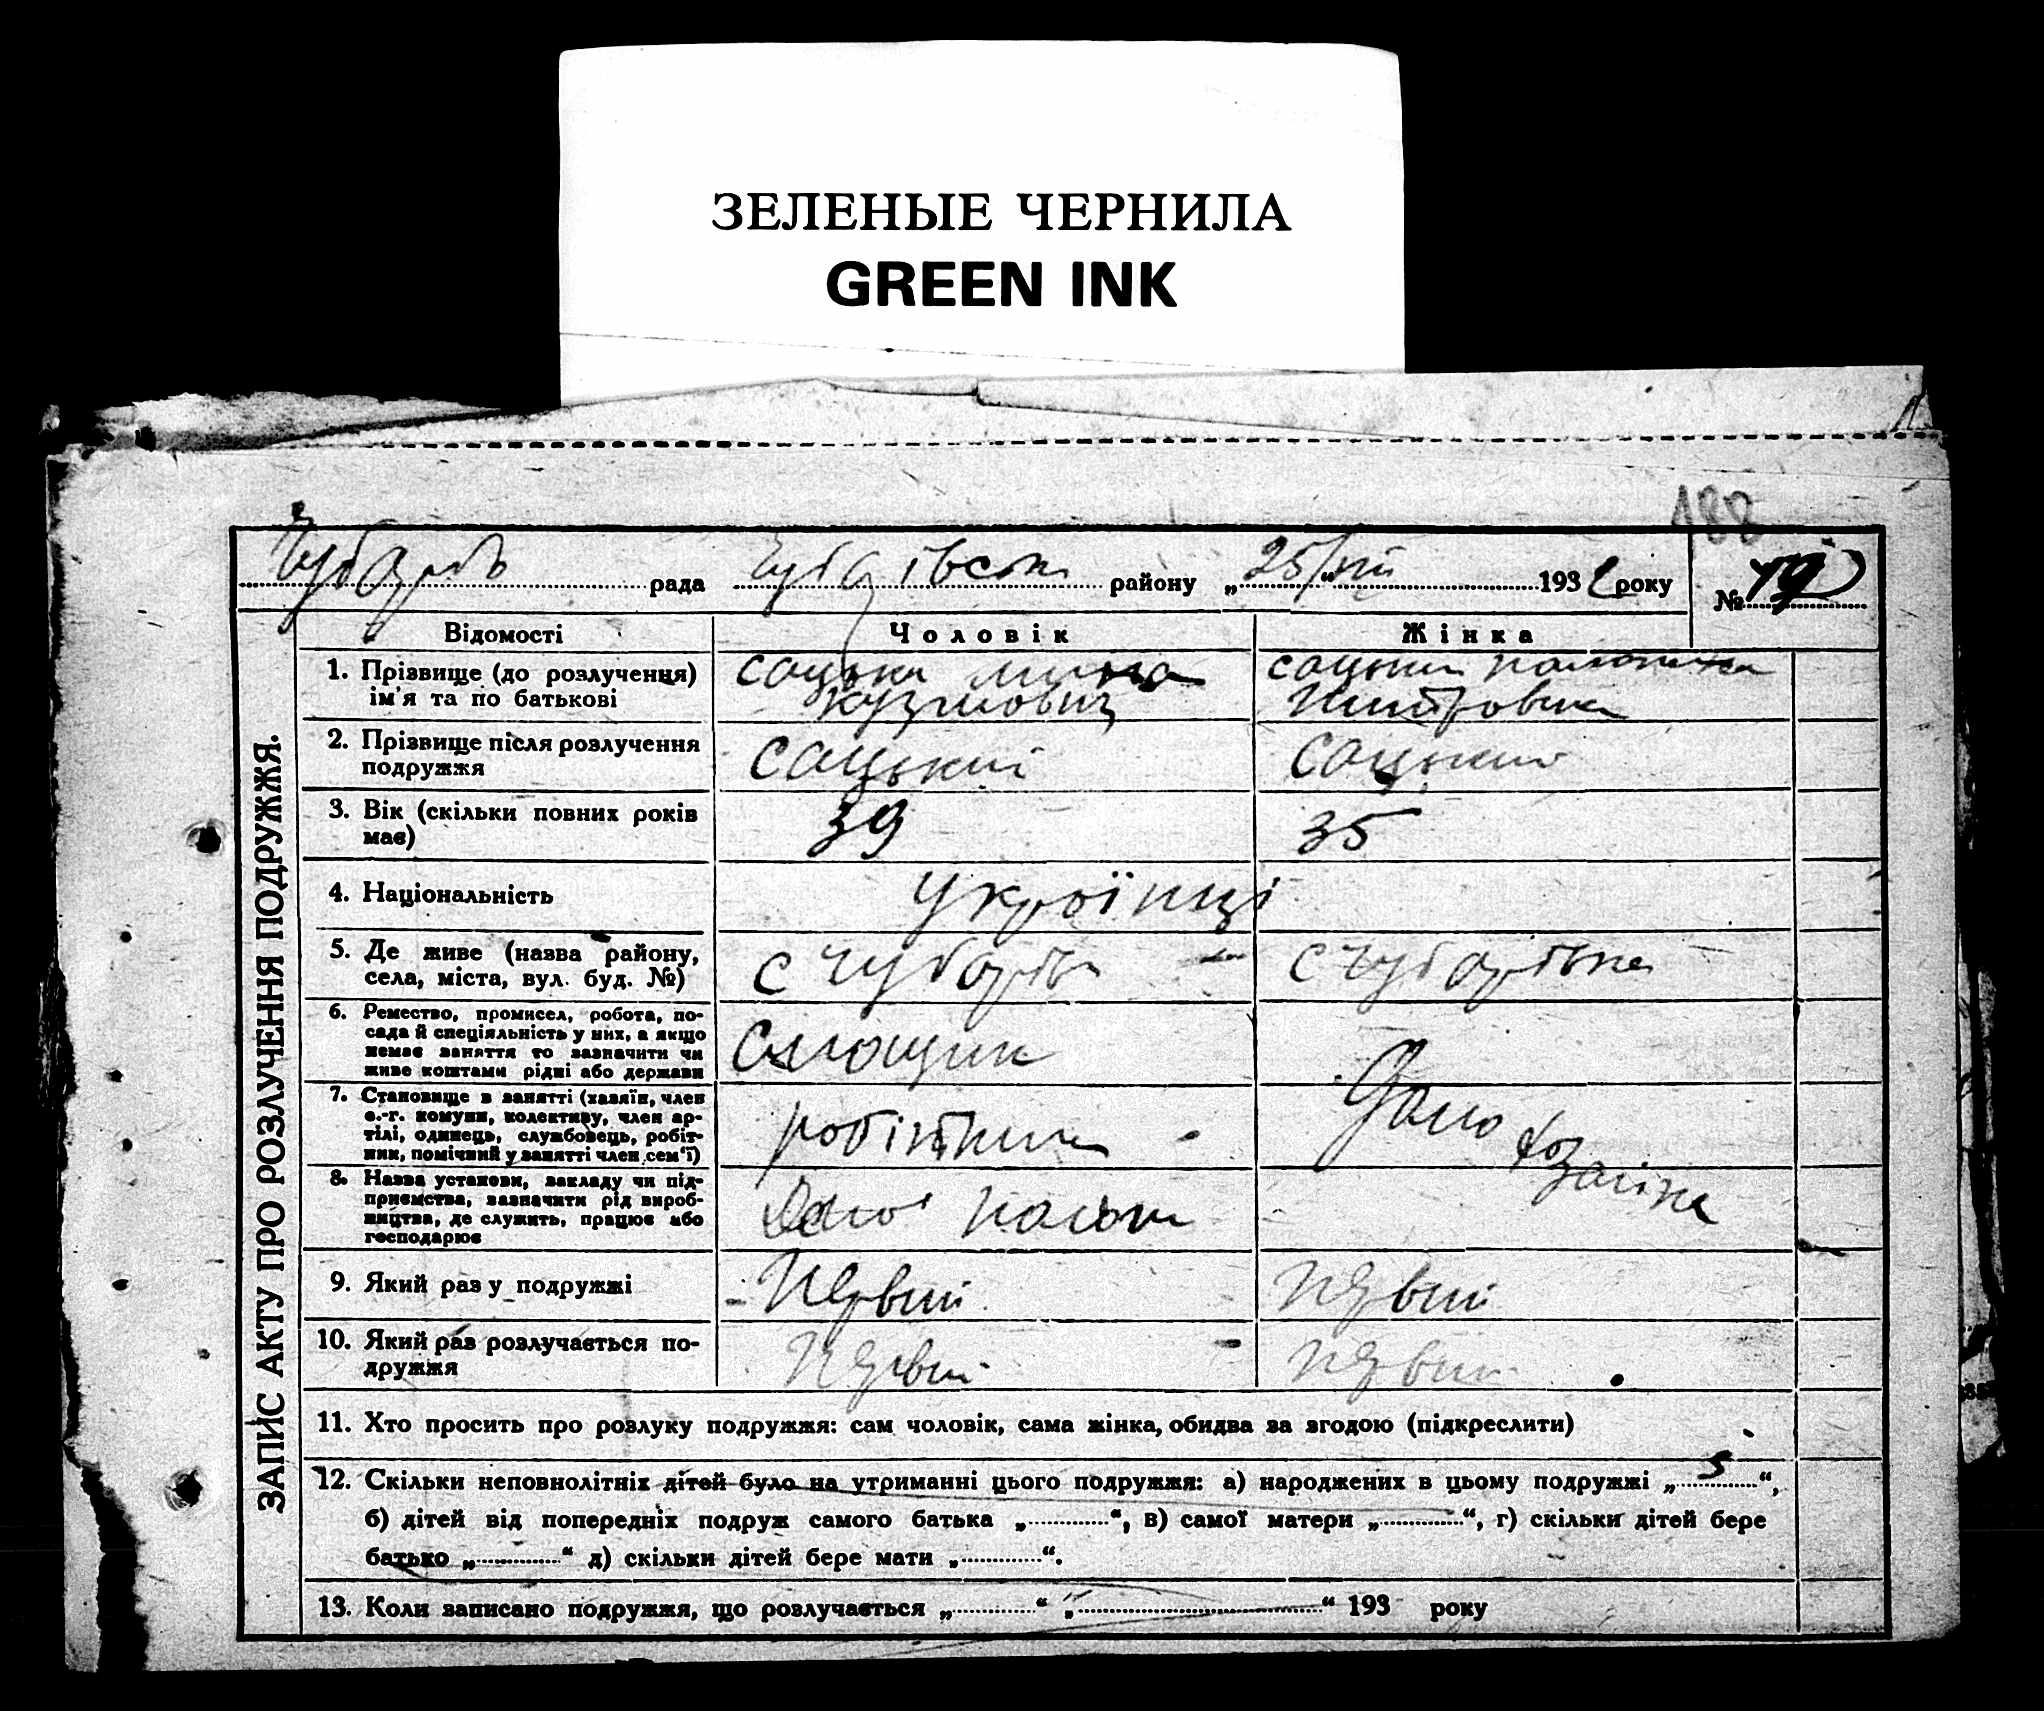 ЗЕЛЕНЫЕ ЧЕРНИЛА
GREEN INK
188
рада Чуба івськ району „25/VII 193 року № 19
ЗАПИС АКТУ ПРО РОЗЛУЧЕННЯ ПОДРУЖЖЯ.
Відомості Чоловік Жінка
1. Прізвище (до розлучення) ім'я та по батькові
Кузмович
2. Прізвище після розлучення подружжя
Соцький Соцький
3. Вік (скільки повних років має)
39 35
4. Національність
Українці
5. Де живе (назва району, села, міста, вул. буд. №)
с Чубарів с Чубарівка
6. Ремество, промисел, робота, по-
сада й спеціяльність у них, а якщо
немає заняття то зазначити чи
живе коштами рідні або держави
7. Становище в занятті (хазяїн, член
с.-г. комуни, колективу, член ар-
тілі, одинець, службовець, робіт-
ник, помічний у занятті член сем'ї)
робітник
Домо хозаіка
8. Назва установи, закладу чи під-
приємства, зазначити рід вироб-
ництва, де служить, працює або
господарює
9. Який раз у подружжі
Первий Первий
10. Який раз розлучається по-
дружжя
Первий Первий
11. Хто просить про розлуку подружжя: сам чоловік, сама жінка, обидва за згодою (підкреслити)
12. Скільки неповнолітніх дітей було на утриманні цього подружжя: а) народжених в цьому подружжі „ 5 “,
б) дітей від попередніх подруж самого батька „ “, в) самої матери „ “, г) скільки дітей бере
батько „ “ д) скільки дітей бере мати „ “.
13. Коли записано подружжя, що розлучається „ “ „ “ 193 року